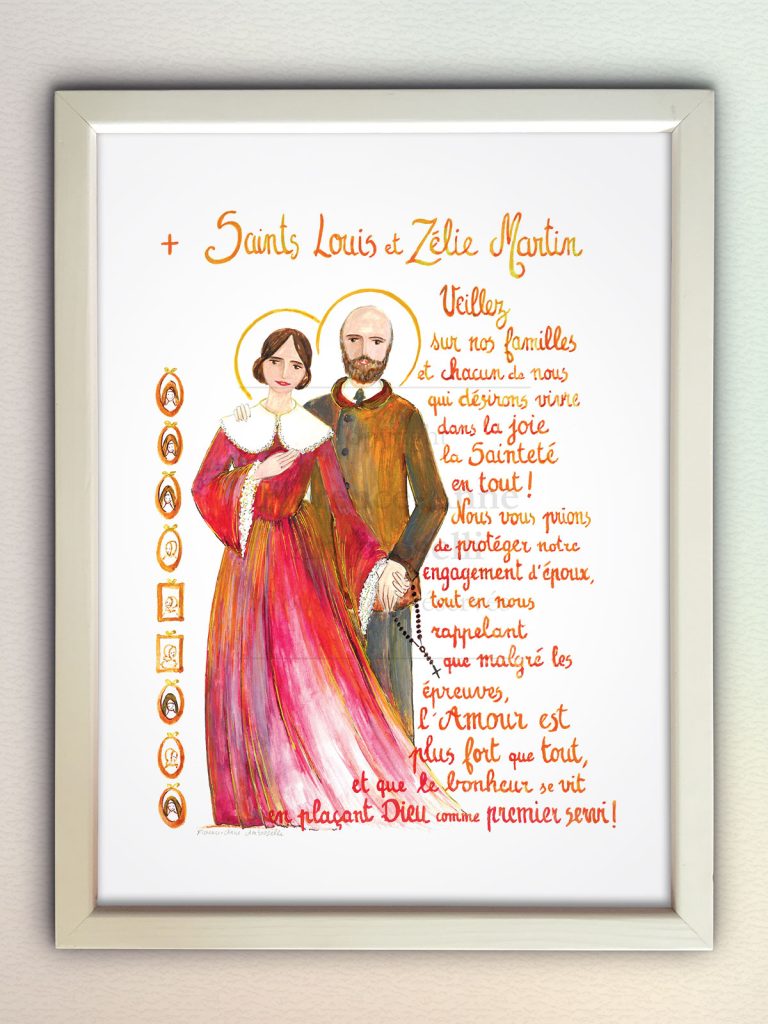 + Saints Louis et Zélie Martin
Veillez
sur nos familles
et chacun de nous
qui désirons vivre
dans la joie
la Sainteté
en tout !
Nous vous prions
de protéger notre
engagement d'époux,
tout en nous
rappelant
que malgré les
épreuves,
l'Amour est
plus fort que tout,
et que le bonheur se vit
en plaçant Dieu comme premier servi !